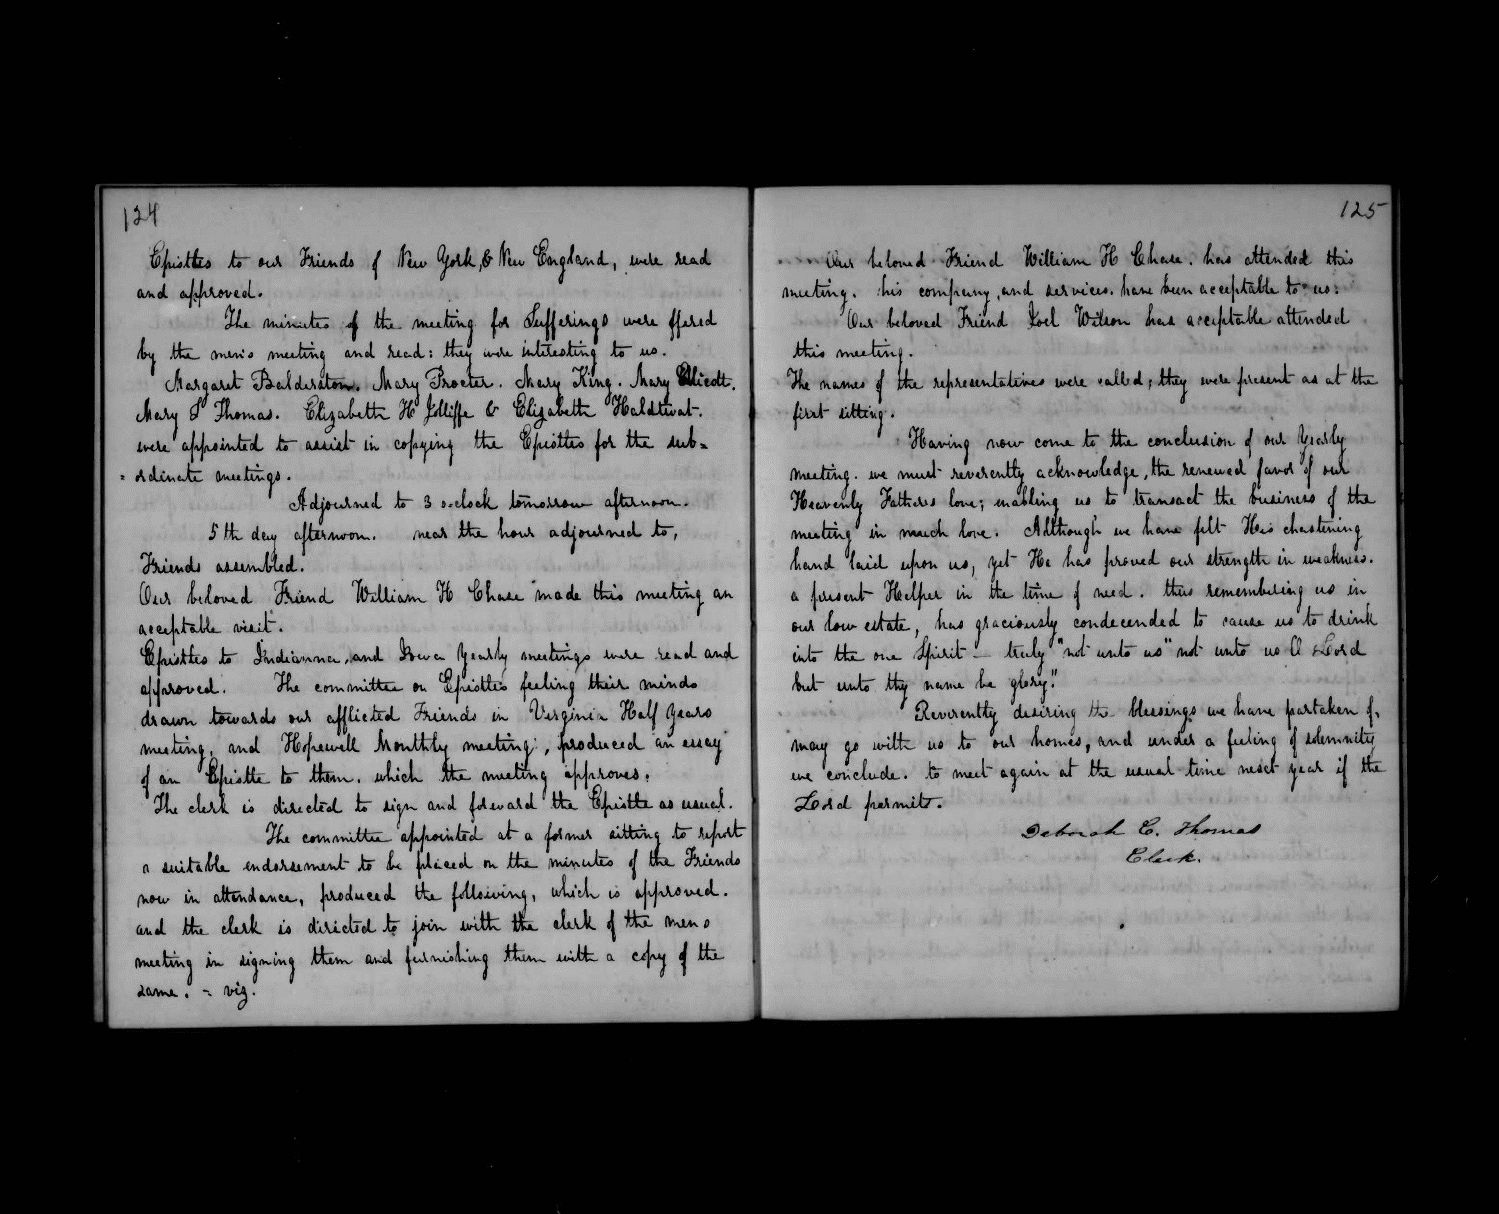 124
Epistles to our Friends of New York, & New England, were read
and approved.
The minutes of the meeting for Sufferings were ffered
by the men's meeting and read: they were interesting to us.
Margaret Balderston. Mary Procter. Mary King. Mary Ellicott.
Mary S Thomas. Elizabeth H Jolliffe & Elizabeth
were appointed to assist in copying the Epistles for the sub=
=ordinate meetings.
Adjourned to 3 o.clock tomorrow afternoon.
5th day afternoon. near the hour adjourned to,
Friends assembled.
Our beloved Friend William H Chase made this meeting an
acceptable visit.
Epistles to Indianna, and Iowa Yearly meetings were read and
approved. The committee on Epistles feeling their minds
drawn towards our afflicted Friends in Virginia Half Years
meeting, and Hopewell Monthly meeting, produced an essay
of an Epistle to them. which the meeting approves.
The clerk is directed to sign and forward the Epistle as usual.
The committee appointed at a former sitting to report
a suitable endorsement to be placed on the minutes of the Friends
now in attendance, produced the following, which is approved.
and the clerk is directed to join with the clerk of the mens
meeting in signing them and furnishing them with a copy of the
same. = viz.
125
Our beloved Friend William H Chase. has attended this
meeting. his company, and services. have been acceptable to us:
Our beloved Friend Joel Wilson has acceptable attended
this meeting.
The names of the representatives were called; they were present as at the
first sitting.
Having now come to the conclusion of our Yearly
meeting. we must reverently acknowledge, the renewed favor of our
Heavenly Fathers love; enabling us to transact the business of the
meeting in much love. Although we have felt His chastening
hand laid upon us, yet He has proved our strength in weakness.
a present Helper in the time of need. thus remembering us in
our low estate, has graciously condecended to cause us to drink
into the one Spirit — truly "not unto us" not unto us O Lord
but unto thy name be glory."
Reverently desiring the blessings we have partaken of,
may go with us to our homes, and under a feeling of solemnity
we conclude. to meet again at the usual time next year if the
Lord permit.
Deborah C. Thomas
Clerk.